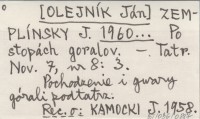 [OLEJNÍK Ján] ZEM-
PLÍNSKY J. 1960... Po
stopách goralov. –. Tatr.
Nov. 7, nr 8: 3.
Pochodzenie i gwary
górali podtatrz.
Rec. o: KAMOCKI J. 1958.